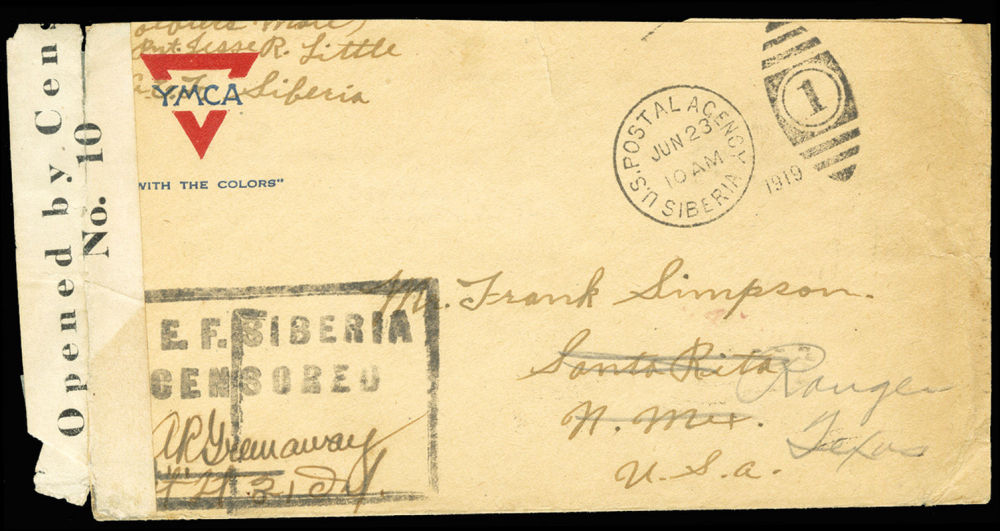 Opened by Cens
No. 10
Pvt. Jesse R. Little
Siberia
YMCA
WITH THE COLORS"
U.S. POSTAL AGENCY
JUN 23
10 AM
SIBERIA
1919
1
E. F. SIBERIA
CENSORED
Mr. Frank Simpson.
Santa Rita
N. Mex.
U.S.a.
Ranger
Texas
31